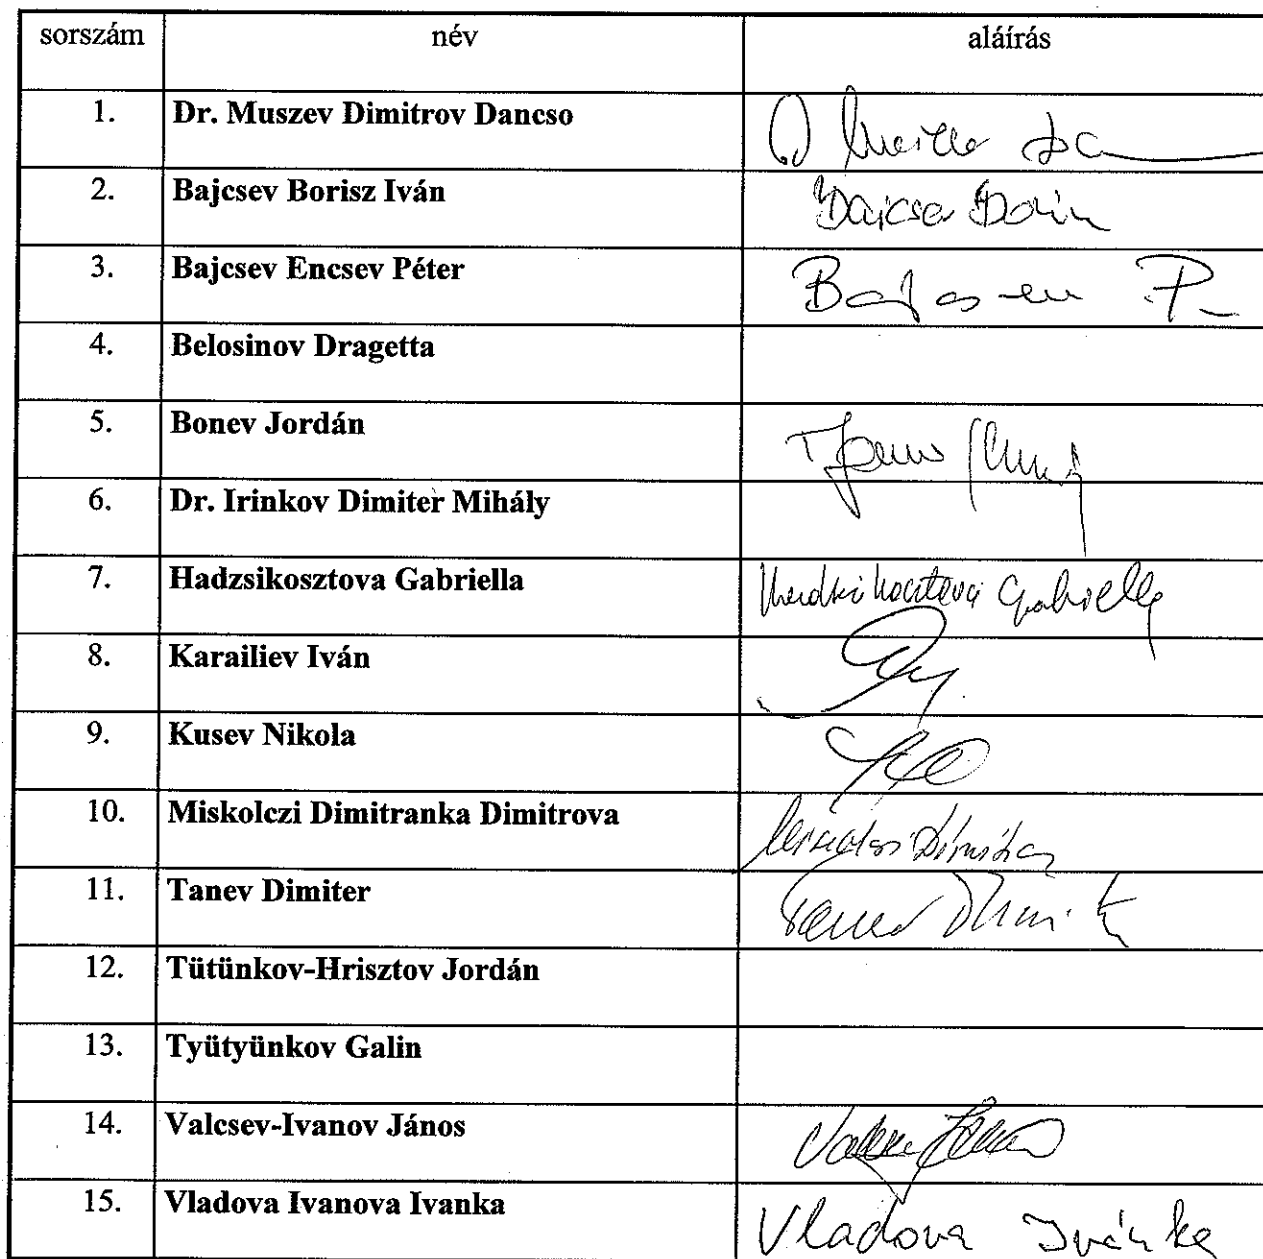 sorszám név aláírás
1. Dr. Muszev Dimitrov Dancso
2. Bajcsev Borisz Iván Bajcsev
3. Bajcsev Encsev Péter Bajcsev P.
4. Belosinov Dragetta
5. Bonev Jordán
6. Dr. Irinkov Dimiter Mihály
7. Hadzsikosztova Gabriella Hadzsikosztova Gabriella
8. Karailiev Iván
9. Kusev Nikola
10. Miskolczi Dimitranka Dimitrova
11. Tanev Dimiter Tanev
12. Tütünkov-Hrisztov Jordán
13. Tyütyünkov Galin
14. Valcsev-Ivanov János
15. Vladova Ivanova Ivanka Vladova Ivánka